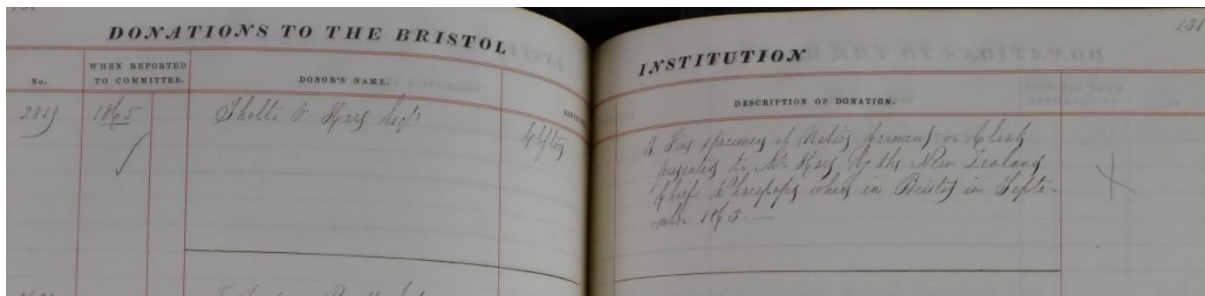 DONATIONS TO THE BRISTOL INSTITUTION
131
No.
WHEN REPORTED
TO COMMITTEE.
DONOR'S NAME.
DESCRIPTION OF DONATION.
1865
Hare Esqre
Clifton
A Fine specimen of Native Garment or Cloak
presented to Mr. Hare by the New Zealand
Chief when in Bristol in Septe-
-mber 1863 —